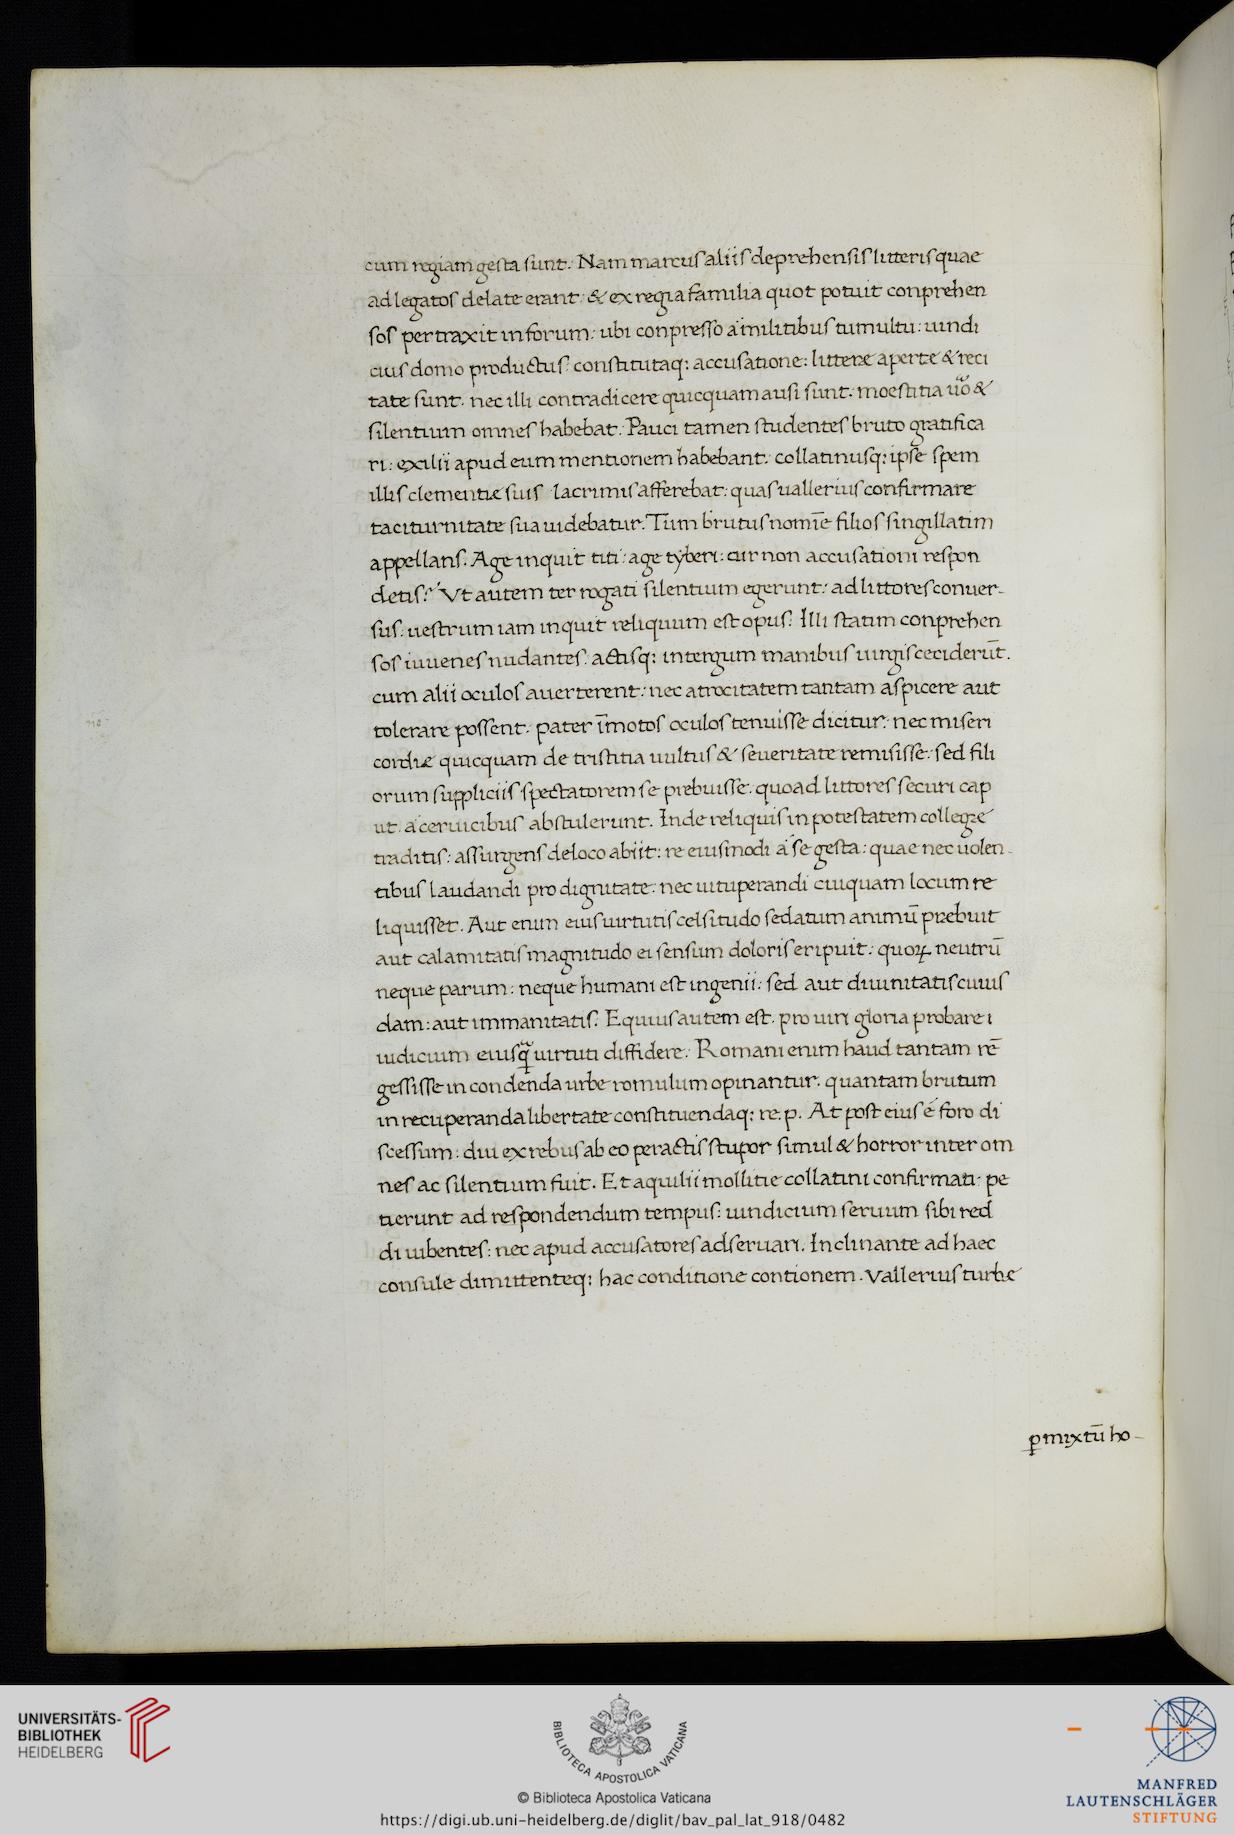 cum regiam gesta sunt. Nam marcus aliis deprehensis litteris quae
ad legatos delate erant: & ex regia familia quot potuit conprehen
sos pertraxit in forum: ubi conpresso a militibus tumultu: uindi
cius domo productus: constitutaq; accusatione: littere aperte & reci
tate sunt. nec illi contradicere quicquam ausi sunt. moestitia &
silentium omnes habebat. Pauci tamen studentes bruto gratifica
ri: exilii apud eum mentionem habebant. collatinusq; ipse spem
illis clementię suis lacrimis afferebat: quas uallerius confirmare
taciturnitate sua uidebatur. Tum brutus nomīe filios singillatim
appellans. Age inquit titi: age tyberi: cur non accusationi respon
detis? Vt autem ter rogati silentium egerunt: ad littores conuer-
sus: uestrum iam inquit reliquum est opus. Illi statim conprehen
sos iuuenes nudantes: actisq; intergum manibus uirgis ceciderūt.
cum alii oculos auerterent: nec atrocitatem tantam aspicere aut
tolerare possent. pater īmotos oculos tenuisse dicitur: nec miseri
cordię quicquam de tristitia uultus & seueritate remisisse: sed fili
orum suppliciis spectatorem se prebuisse: quoad littores securi cap
ut a ceruicibus abstulerunt. Inde reliquis in potestatem collegę
traditis: assurgens de loco abiit: re eiusmodi a se gesta: quae nec uolen-
tibus laudandi pro dignitate: nec uituperandi cuiquam locum re
liquisset. Aut enim eius uirtutis celsitudo sedatum animū prebuit
aut calamitatis magnitudo ei sensum doloris eripuit: quoꝝ neutrū
neque parum: neque humani est ingenii: sed aut diuinitatis cuius
dam: aut immanitatis. Equius autem est. pro uiri gloria probare i
iudicium uirtuti diffidere. Romani enim haud tantam rē
gessisse in condenda urbe romulum opinantur. quantam brutum
in recuperanda libertate constituendaq; re.p. At post eius é foro di
scessum: diu ex rebus ab eo peractis stupor simul & horror inter om
nes ac silentium fuit. Et aquilii mollitie collatini confirmati: pe
tierunt ad respondendum tempus: uindicium seruum sibi red
di iubentes: nec apud accusatores adseruari. Inclinante ad haec
consule dimittenteq; hac conditione contionem. Vallerius turbę
ꝑmixtū ho-
UNIVERSITÄTS-
BIBLIOTHEK
HEIDELBERG
BIBLIOTECA APOSTOLICA VATICANA
© Biblioteca Apostolica Vaticana
https://digi.ub.uni-heidelberg.de/diglit/bav_pal_lat_918/0482
MANFRED
LAUTENSCHLÄGER
STIFTUNG